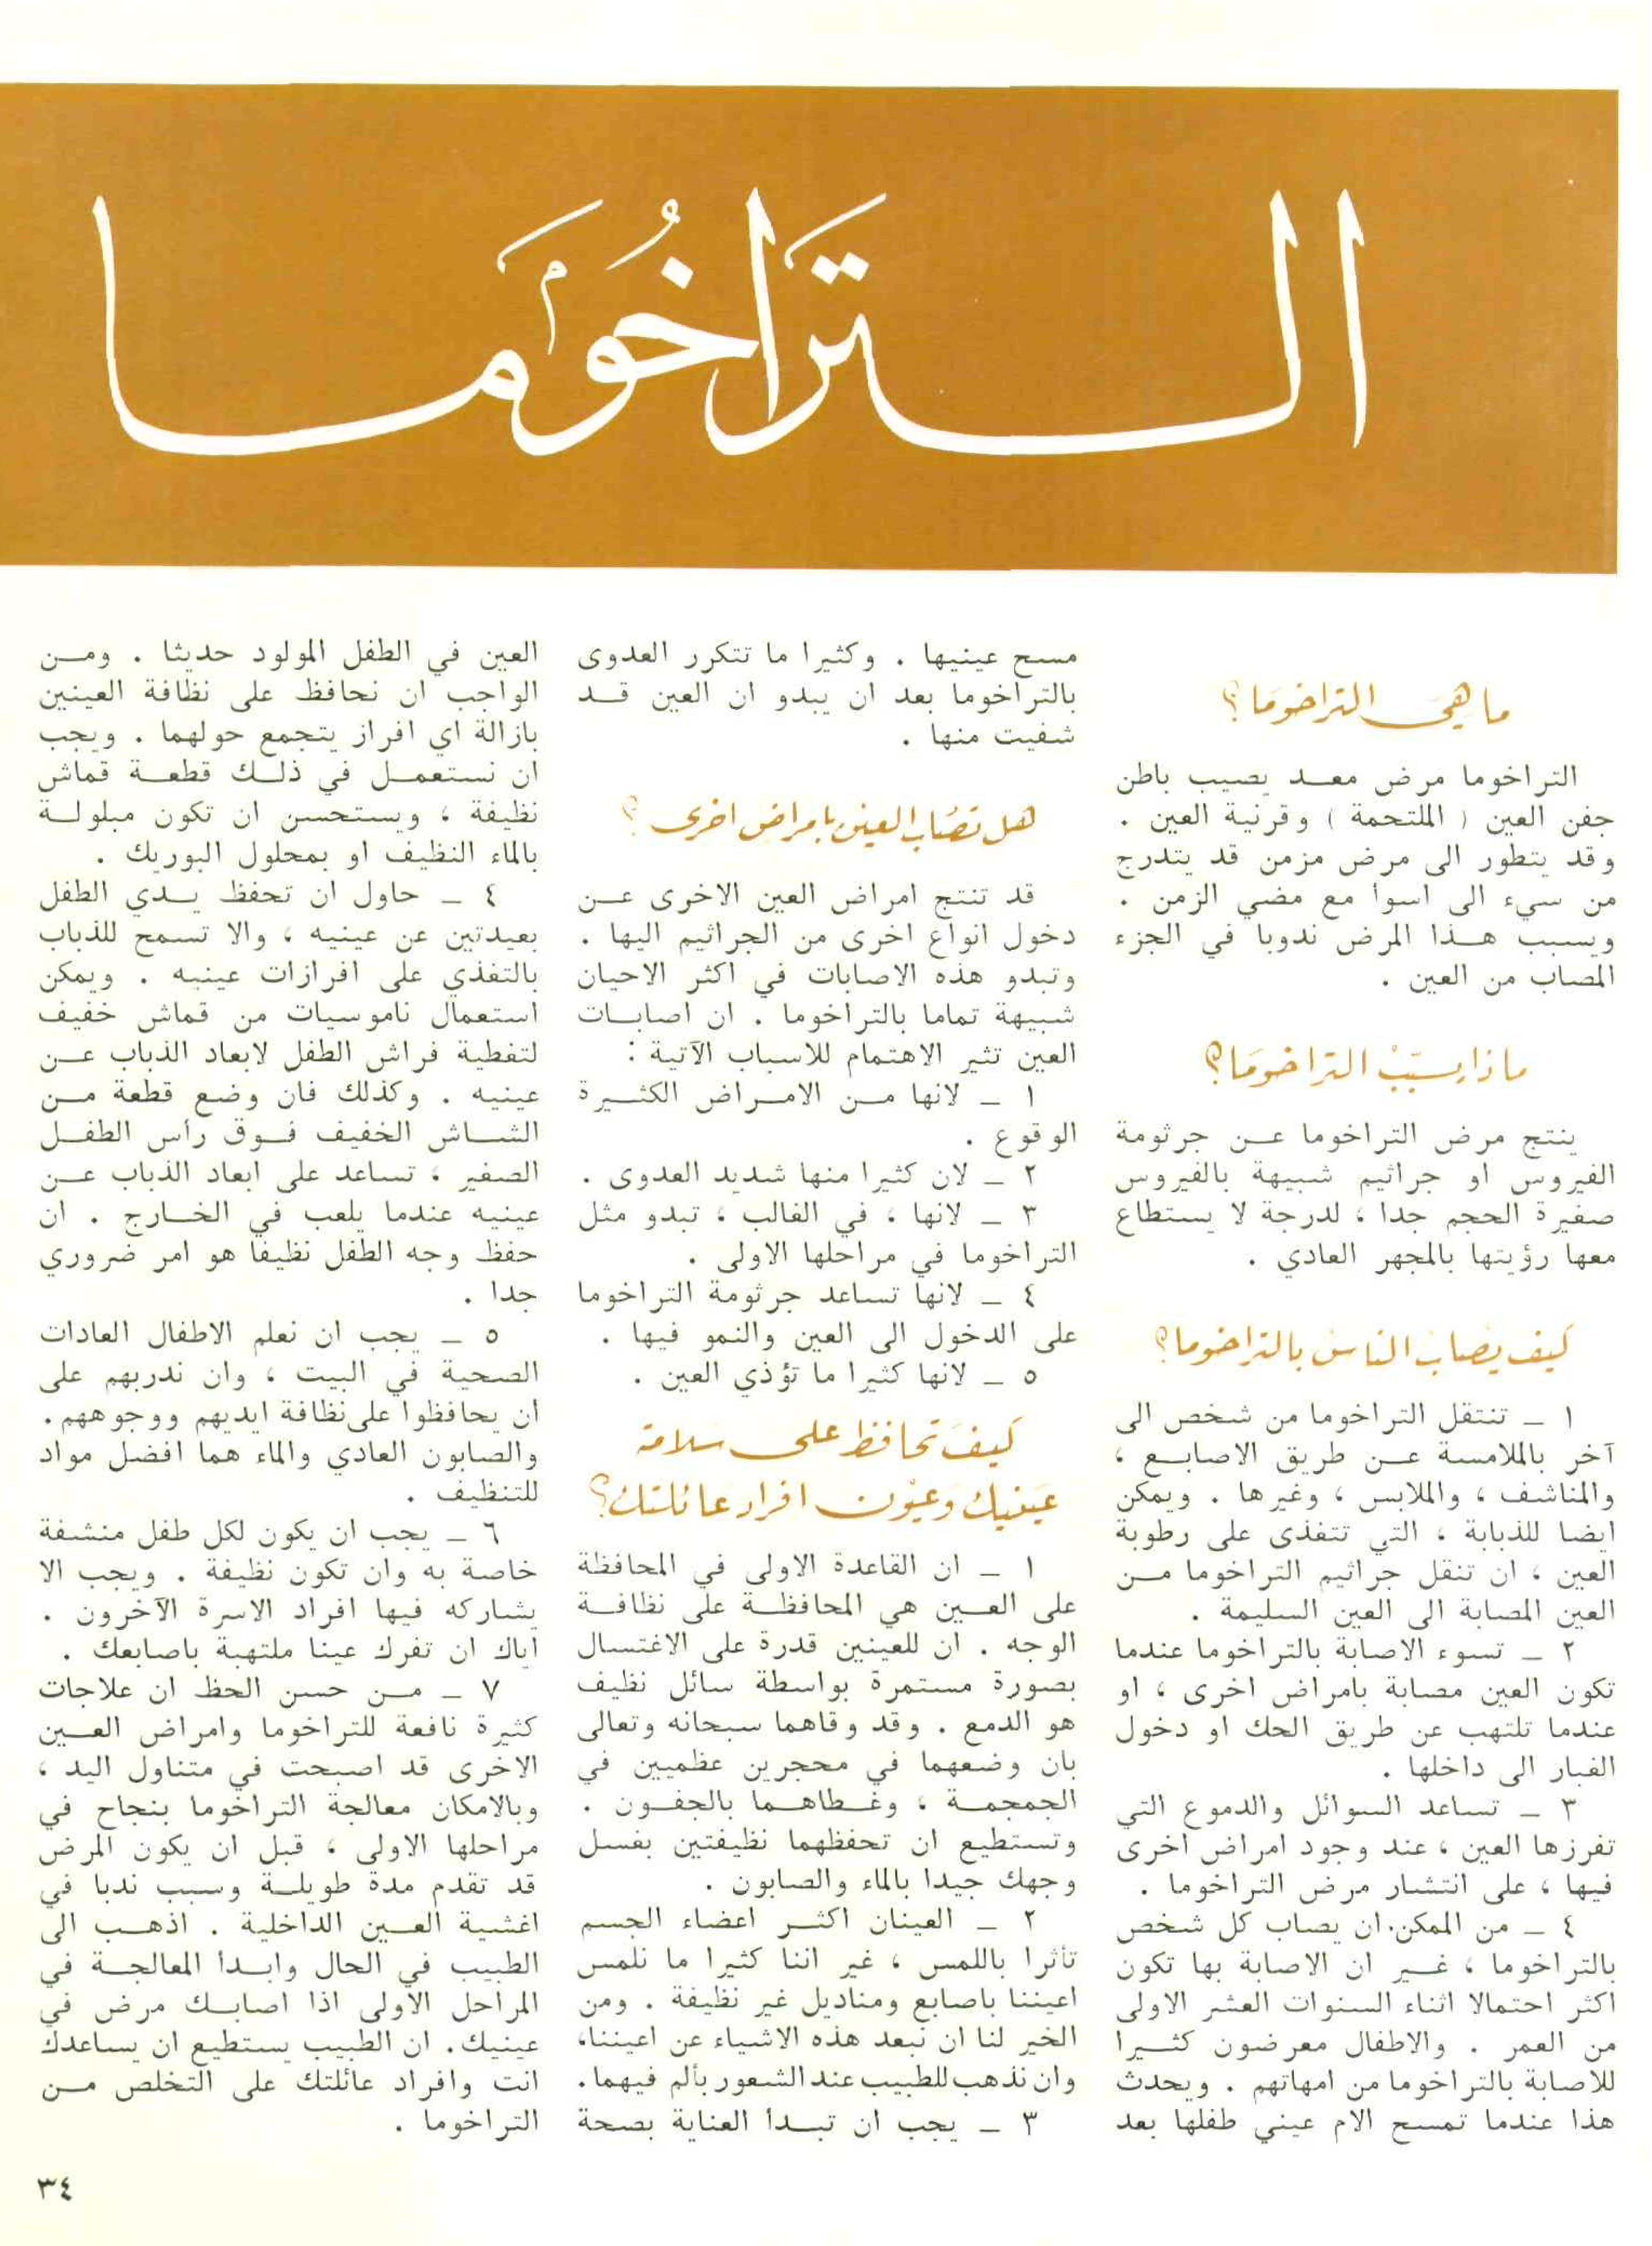 التَراخُومَا
ما هيَ التراخومَا؟
التراخوما مرض معد يصيب باطن
جفن العين ( الملتحمة ) وقرنية العين .
وقد يتطور الى مرض مزمن قد يتدرج
من سيء الى اسوأ مع مضي الزمن .
ويسبب هذا المرض ندوبا في الجزء
المصاب من العين .
ماذا يسَبّبْ التراخومَا؟
ينتج مرض التراخوما عن جرثومة
الفيروس او جراثيم شبيهة بالفيروس
صغيرة الحجم جدا ، لدرجة لا يستطاع
معها رؤيتها بالمجهر العادي .
كيف يصاب الناس بالتراخوما؟
١ – تنتقل التراخوما من شخص الى
آخر بالملامسة عن طريق الاصابع ،
والمناشف ، والملابس ، وغيرها . ويمكن
ايضا للذبابة ، التي تتغذى على رطوبة
العين ، ان تنقل جراثيم التراخوما من
العين المصابة الى العين السليمة .
٢ – تسوء الاصابة بالتراخوما عندما
تكون العين مصابة بامراض اخرى ، او
عندما تلتهب عن طريق الحك او دخول
الغبار الى داخلها .
٣ – تساعد السوائل والدموع التي
تفرزها العين ، عند وجود امراض اخرى
فيها ، على انتشار مرض التراخوما .
٤ – من الممكن ان يصاب كل شخص
بالتراخوما ، غير ان الاصابة بها تكون
اكثر احتمالا اثناء السنوات العشر الاولى
من العمر . والاطفال معرضون كثيرا
للاصابة بالتراخوما من امهاتهم . ويحدث
هذا عندما تمسح الام عيني طفلها بعد
مسح عينيها . وكثيرا ما تتكرر العدوى
بالتراخوما بعد ان يبدو ان العين قد
شفيت منها .
هل تصَاب العين بامراض اخرى ؟
قد تنتج امراض العين الاخرى عن
دخول انواع اخرى من الجراثيم اليها .
وتبدو هذه الاصابات في اكثر الاحيان
شبيهة تماما بالتراخوما . ان اصابات
العين تثير الاهتمام للاسباب الآتية :
١ – لانها من الامراض الكثيرة
الوقوع .
٢ – لان كثيرا منها شديد العدوى .
٣ – لانها ، في الغالب ، تبدو مثل
التراخوما في مراحلها الاولى .
٤ – لانها تساعد جرثومة التراخوما
على الدخول الى العين والنمو فيها .
٥ – لانها كثيرا ما تؤذي العين .
كيفَ تحافظ على سَلامة
عَينيك وَعيُون افراد عائلتك؟
١ – ان القاعدة الاولى في المحافظة
على العين هي المحافظة على نظافة
الوجه . ان للعينين قدرة على الاغتسال
بصورة مستمرة بواسطة سائل نظيف
هو الدمع . وقد وقاهما سبحانه وتعالى
بان وضعهما في محجرين عظميين في
الجمجمة ، وغطاهما بالجفون .
وتستطيع ان تحفظهما نظيفتين بغسل
وجهك جيدا بالماء والصابون .
٢ – العينان اكثر اعضاء الجسم
تأثرا باللمس ، غير اننا كثيرا ما نلمس
اعيننا باصابع ومناديل غير نظيفة . ومن
الخير لنا ان نبعد هذه الاشياء عن اعيننا،
وان نذهب للطبيب عند الشعور بألم فيهما .
٣ – يجب ان تبدأ العناية بصحة
العين في الطفل المولود حديثا . ومن
الواجب ان نحافظ على نظافة العينين
بازالة اي افراز يتجمع حولهما . ويجب
ان نستعمل في ذلك قطعة قماش
نظيفة ، ويستحسن ان تكون مبلولة
بالماء النظيف او بمحلول البوريك .
٤ – حاول ان تحفظ يدي الطفل
بعيدتين عن عينيه ، والا تسمح للذباب
بالتغذي على افرازات عينيه . ويمكن
استعمال ناموسيات من قماش خفيف
لتغطية فراش الطفل لابعاد الذباب عن
عينيه . وكذلك فان وضع قطعة من
الشاش الخفيف فوق رأس الطفل
الصغير ، تساعد على ابعاد الذباب عن
عينيه عندما يلعب في الخارج . ان
حفظ وجه الطفل نظيفا هو امر ضروري
جدا .
٥ – يجب ان نعلم الاطفال العادات
الصحية في البيت ، وان ندربهم على
ان يحافظوا على نظافة ايديهم ووجوههم .
والصابون العادي والماء هما افضل مواد
للتنظيف .
٦ – يجب ان يكون لكل طفل منشفة
خاصة به وان تكون نظيفة . ويجب الا
يشاركه فيها افراد الاسرة الآخرون .
اياك ان تفرك عينا ملتهبة باصابعك .
٧ – من حسن الحظ ان علاجات
كثيرة نافعة للتراخوما وامراض العين
الاخرى قد اصبحت في متناول اليد ،
وبالامكان معالجة التراخوما بنجاح في
مراحلها الاولى ، قبل ان يكون المرض
قد تقدم مدة طويلة وسبب ندبا في
اغشية العين الداخلية . اذهب الى
الطبيب في الحال وابدأ المعالجة في
المراحل الاولى اذا اصابك مرض في
عينيك. ان الطبيب يستطيع ان يساعدك
انت وافراد عائلتك على التخلص من
التراخوما .
٣٤